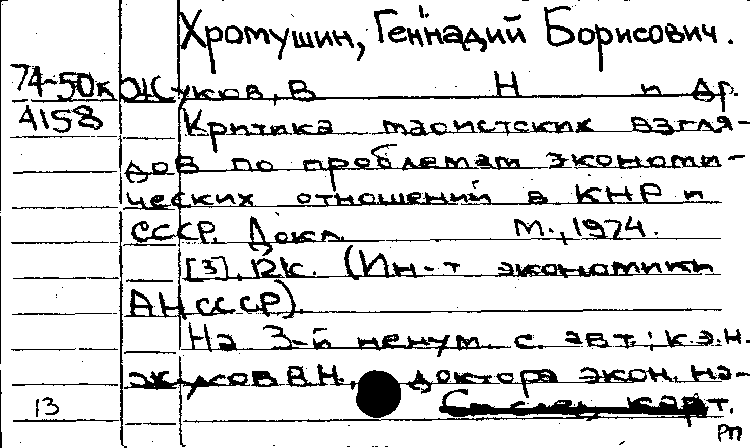 Хромушин, Геннадий Борисович.
74-50к Жуков, В Н и др.
4158 Критика маоистских взгля-
дов по проблемам экономи-
ческих отношений в КНР и
СССР. Докл. М., 1974.
[3], 12к. (Ин-т экономики
АН СССР).
На 3-й ненум. с. авт.: к.э.н.
Жуков В.Н., доктора экон. на-
13 См след. карт.
РП